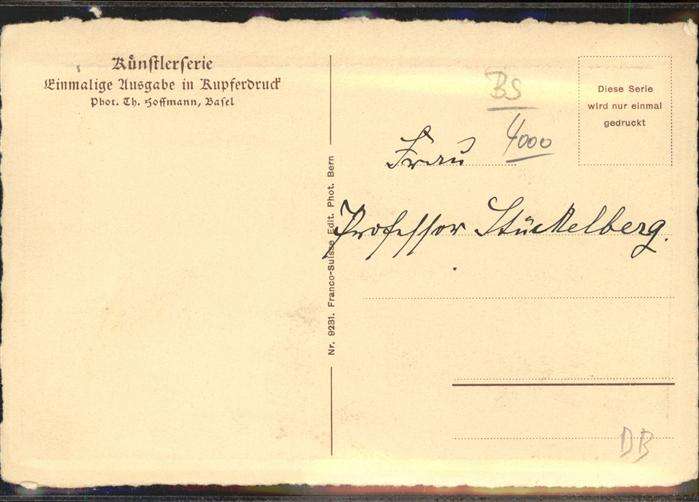 Künstlerserie
Einmalige Ausgabe in Kupferdruck
Phot. Th. Hoffmann, Basel
Nr. 9231. Franco-Suisse Edit. Phot. Bern
BS
4000
Diese Serie
wird nur einmal
gedruckt
Frau
Professor Stückelberg.
DB